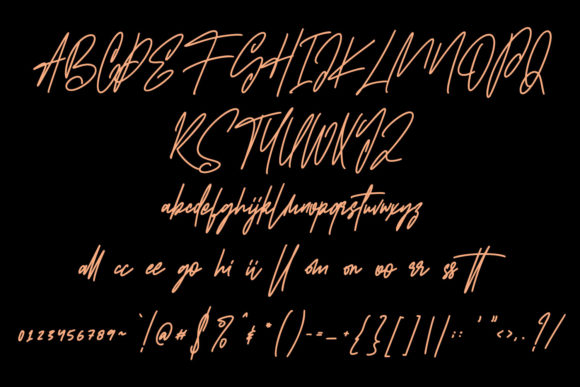 ABCDEFGHIJKLMNOPQ
RSTUVWXYZ
abcdefghijklmnopqrstuvwxyz
all cc ee go hi ii ll om on oo rr ss tt
0123456789~ `!@#$%^&*()-=_+{}[]||;:'"<>,.?/